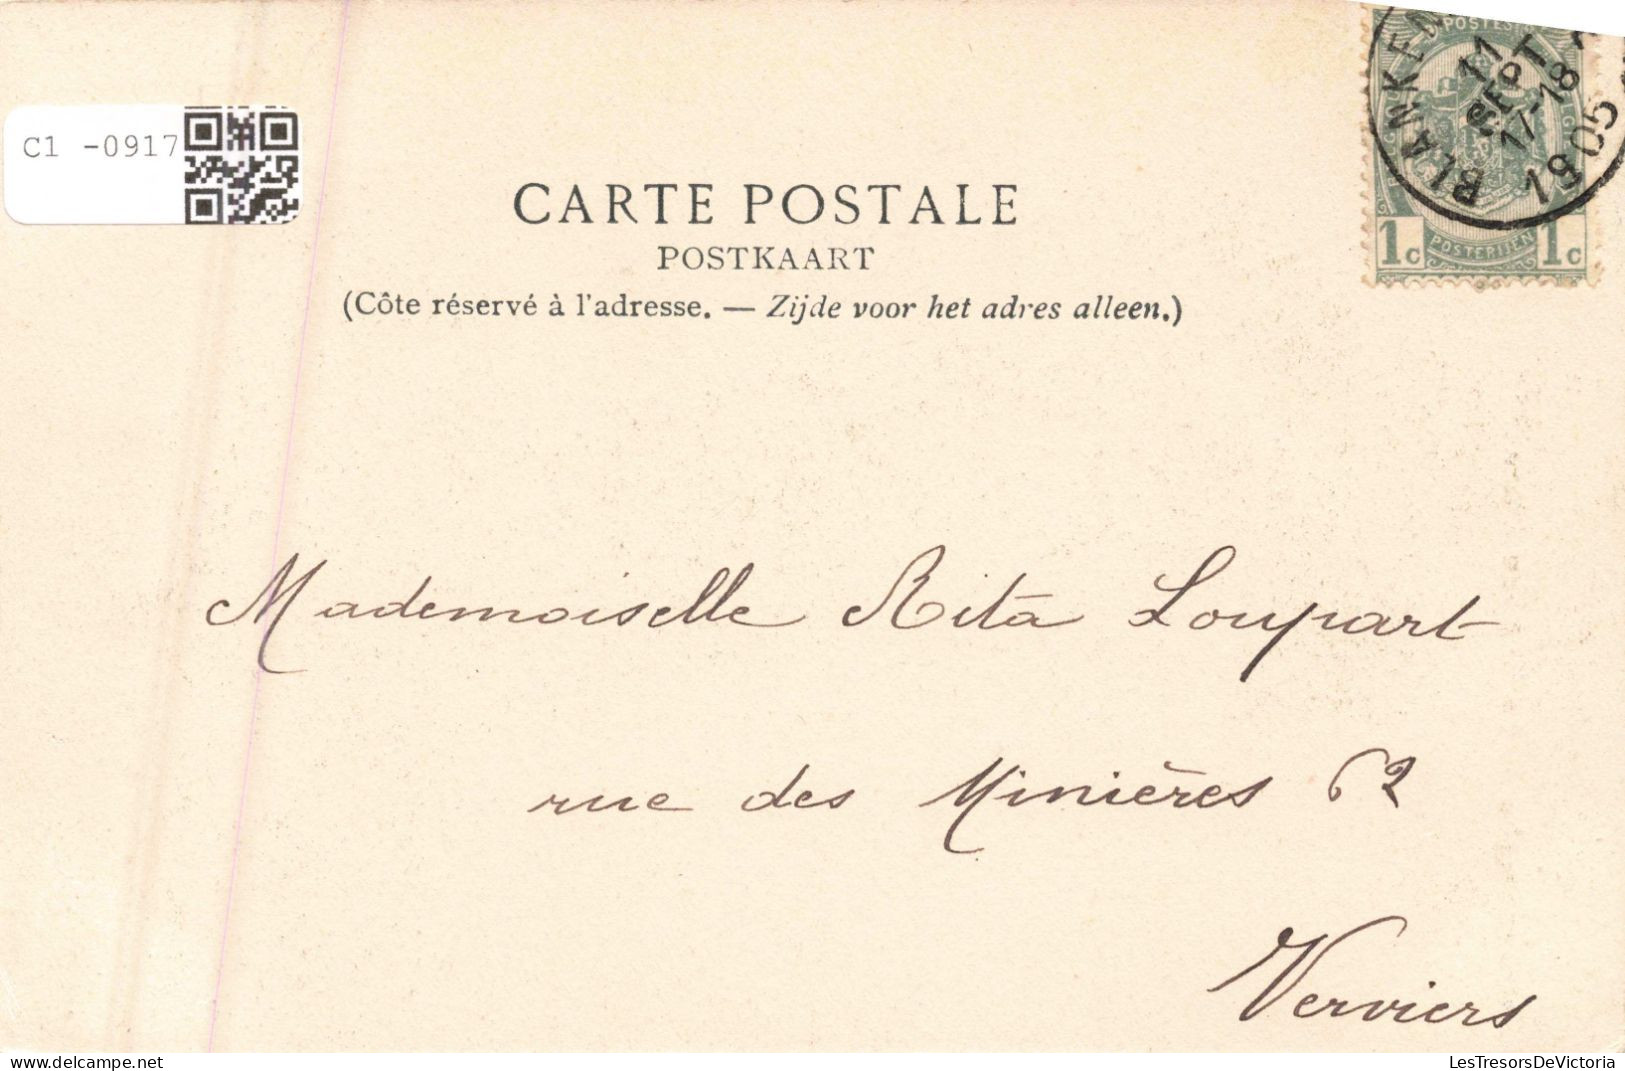 C1 -0917
POSTES
BLANKEN
11
SEPT
17-18
1905
1c POSTERIJEN 1c
CARTE POSTALE
POSTKAART
(Côte réservé à l'adresse. — Zijde voor het adres alleen.)
Mademoiselle Rita Loupart
rue des Minières 62
Verviers
LesTresorsDeVictoria